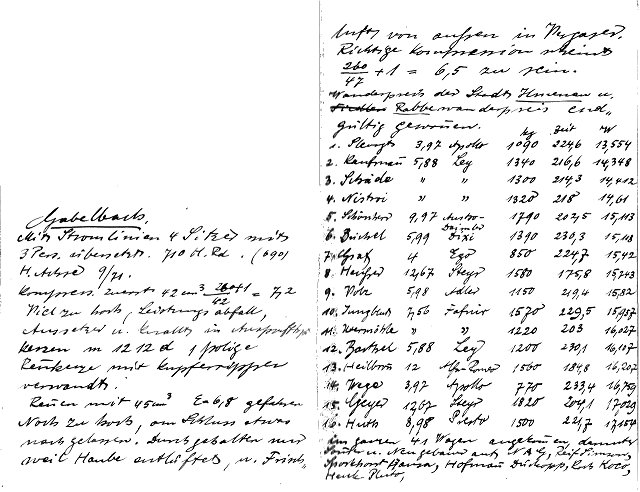 Gabelbach.
Mit Stromlinien 4 Sitzer mit
3 Pers. übersetzt. 710 H. Rd. (690)
H. Achse 9/71.
Kompress. zuerst 42 cm³ 260+1 / 42 = 7,2
Viel zu hoch, Leistungsabfall,
Aussetzer u. Knallt in Auspufftopf
kerzen m 12 12 d 1 polige
Rennkerze mit Kupferstopfen
verwandt.
Rennen mit 45 cm³ E=6,8 gefahren
Noch zu hoch, am Schluss etwas
nachgelassen. Durchgehalten nur
weil Haube entlüftet, u. Frisch-
lufts von aussen in Vergaser.
Richtige Kompression scheint
260/47 + 1 = 6,5 zu sein.
Wanderpreis der Stadt Ilmenau u.
Rabbewanderpreis end-
gültig gewonnen.
kg Zeit W
1. 3,97 Apollo 1090 224,6 13,554
2. Kaufmann 5,88 Ley 1340 216,6 14,348
3. Schräde " " 1300 214,3 14,412
4. " " 1320 218 14,61
5. 9,97 Austro-Daimler 1790 202,5 15,113
6. Büchel 5,99 Dixi 1390 230,3 15,118
7. Graf 4 Ego 850 224,7 15,42
8. 12,67 Steyr 1580 175,8 15,743
9. Volz 5,98 Adler 1150 219,4 15,82
10. 7,56 Fafnir 1570 229,5 15,957
11. " " 1220 203 16,027
12. Barthel 5,88 Ley 1200 230,1 16,107
13. Heilbron 12 1560 184,8 16,207
14. Wege 3,97 Apollo 770 233,4 16,759
15. Geyer 12,67 Ley 1820 204,1 17,029
16. Huth 3,98 1500 221,7 17,154
im ganzen 41 Wagen angekommen, darunter
u. Neugebaur auf N A G,
Hansa, Hofmann Dürkopp, Koco,